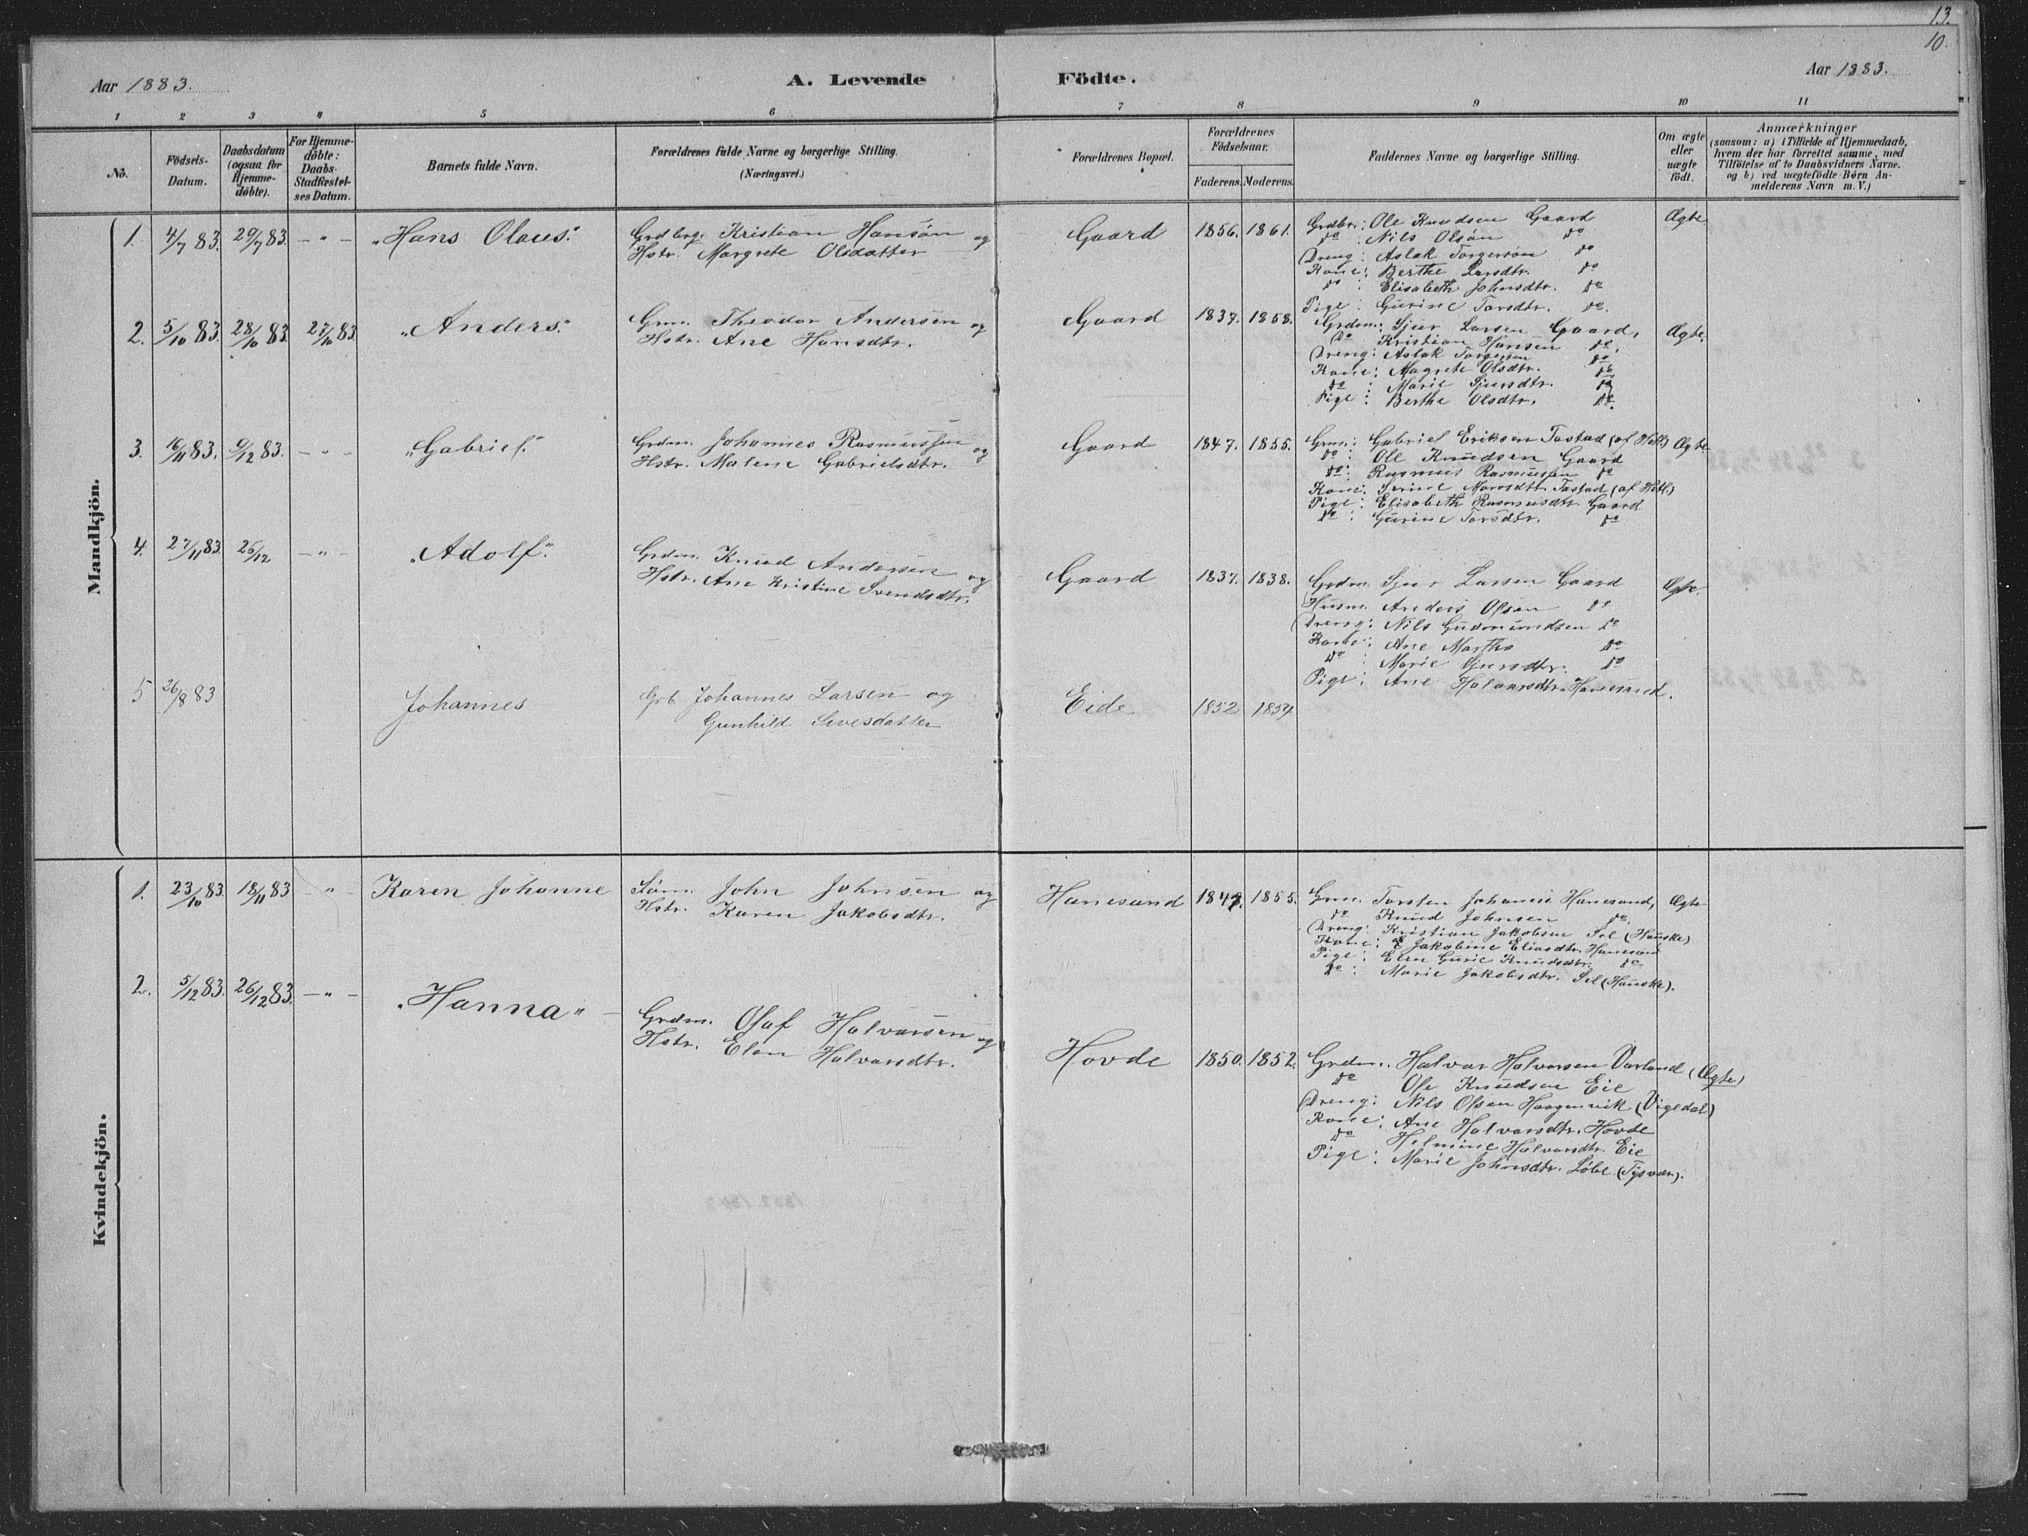 13.
10.
Aar 1883.
A. Levende
Födte.
Aar 1883.
1 2 3 4 5 6 7 8 9 10 11
No.
Födsels-Datum.
Daabsdatum (ogsaa for Hjemme-döbte).
For Hjemme-döbte: Daabs-Stadfæstel-ses Datum.
Barnets fulde Navn.
Forældrenes fulde Navne og borgerlige Stilling.
(Næringsvei.)
Forældrenes Bopæl.
Forældrenes Födselsaar.
Faderens. Moderens.
Faddernes Navne og borgerlige Stilling.
Om ægte eller uægte födt.
Anmærkninger
(saasom: a) i Tilfælde af Hjemmedaab,
hvem der har forrettet samme, med
Tilföielse af to Daabsvidners Navne.
og b) ved uægtefödte Börn An-
melderens Navn m. V.)
Mandkjön.
1. 4/7 83. 29/7 83. -"- "Hans Olaus."
Grdbrg. Kristian Hansøn og
Hstr. Margrete Olsdatter
Gaard 1856. 1861.
Grdbr: Ole Knudsen Gaard
do Nils Olsøn do
Dreng: Aslak Torgersøn do
Kone: Berthe Larsdtr. do
do: Elisabeth Johnsdtr. do
Pige: Gurine Torsdtr. do
Ægte
2. 5/10 83. 28/10 83. 27/10 83. "Anders."
Grm. Theodor Andersen og
Hstr. Ane Hansdtr.
Gaard 1837. 1858.
Grdm: Sjur Larsen Gaard,
Do Kristian Hansen do,
Dreng: Aslak Torgersen do
Kone: Magrete Olsdtr. do
do: Marie Sjursdtr. do
Pige: Berthe Olsdtr. do.
Ægte.
3. 16/11 83. 9/12 83. -"- "Gabriel."
Grdm. Johannes Rasmussen og
Hstr. Malene Gabrielsdtr.
Gaard 1847. 1855.
Grm: Gabriel Eriksen Tastad (af Hetl)
do: Ole Knudsen Gaard
do: Rasmus Rasmussen do
Kone: Serine Monsdtr. Tastad (af Hetl.)
Pige: Elisabeth Rasmusdtr. Gaard
do: Gurine Torsdtr. do
Ægte
4. 27/11 83. 26/12 -"- "Adolf."
Grdm. Knud Andersen og
Hstr. Ane Kristine Svendsdtr.
Gaard 1837. 1838.
Grdm. Sjur Larsen Gaard
Husm. Anders Olsen do
Dreng: Nils Gudmundsen do
Kone: Ane Martha do
do: Marie Sjursdtr. do
Pige: Ane Halvarsdtr. Hanesand.
Ægte.
5 26/8 83 Johannes
Grb. Johannes Larsen og
Gunhild Sivesdatter
Eide 1852 1854.
Kvindekjön.
1. 23/10 83. 18/11 83 -"- Karen Johanne
John Johnsen og
Hstr. Karen Jakobsdtr.
Hanesand 1847. 1855.
Grm. Torsten Johannes Hanesand,
do Knud Johnsen do.
Dreng: Kristian Jakobsen Sel (Hauske)
Kone: Jakobine Eliasdtr. Hanesand
Pige: Elen Gurie Knudsdtr. do
do: Marie Jakobsdtr. Sel (Hauske).
Ægte
2. 5/12 83. 26/12 83. -"- "Hanna"
Grdm. Olaf Halvarsen og
Hstr. Elen Halvarsdtr.
Hovde 1850. 1852.
Grdm. Halvar Halvarsen Varland
do Ole Knudsen Eie
Dreng: Nils Olsen Haagenvik (Vigedal)
Kone: Ane Halvarsdtr. Hovde
do Helmine Halvarsdtr. Eie
Pige: Marie Johnsdtr. Løbe (Tysvær).
(Ægte)